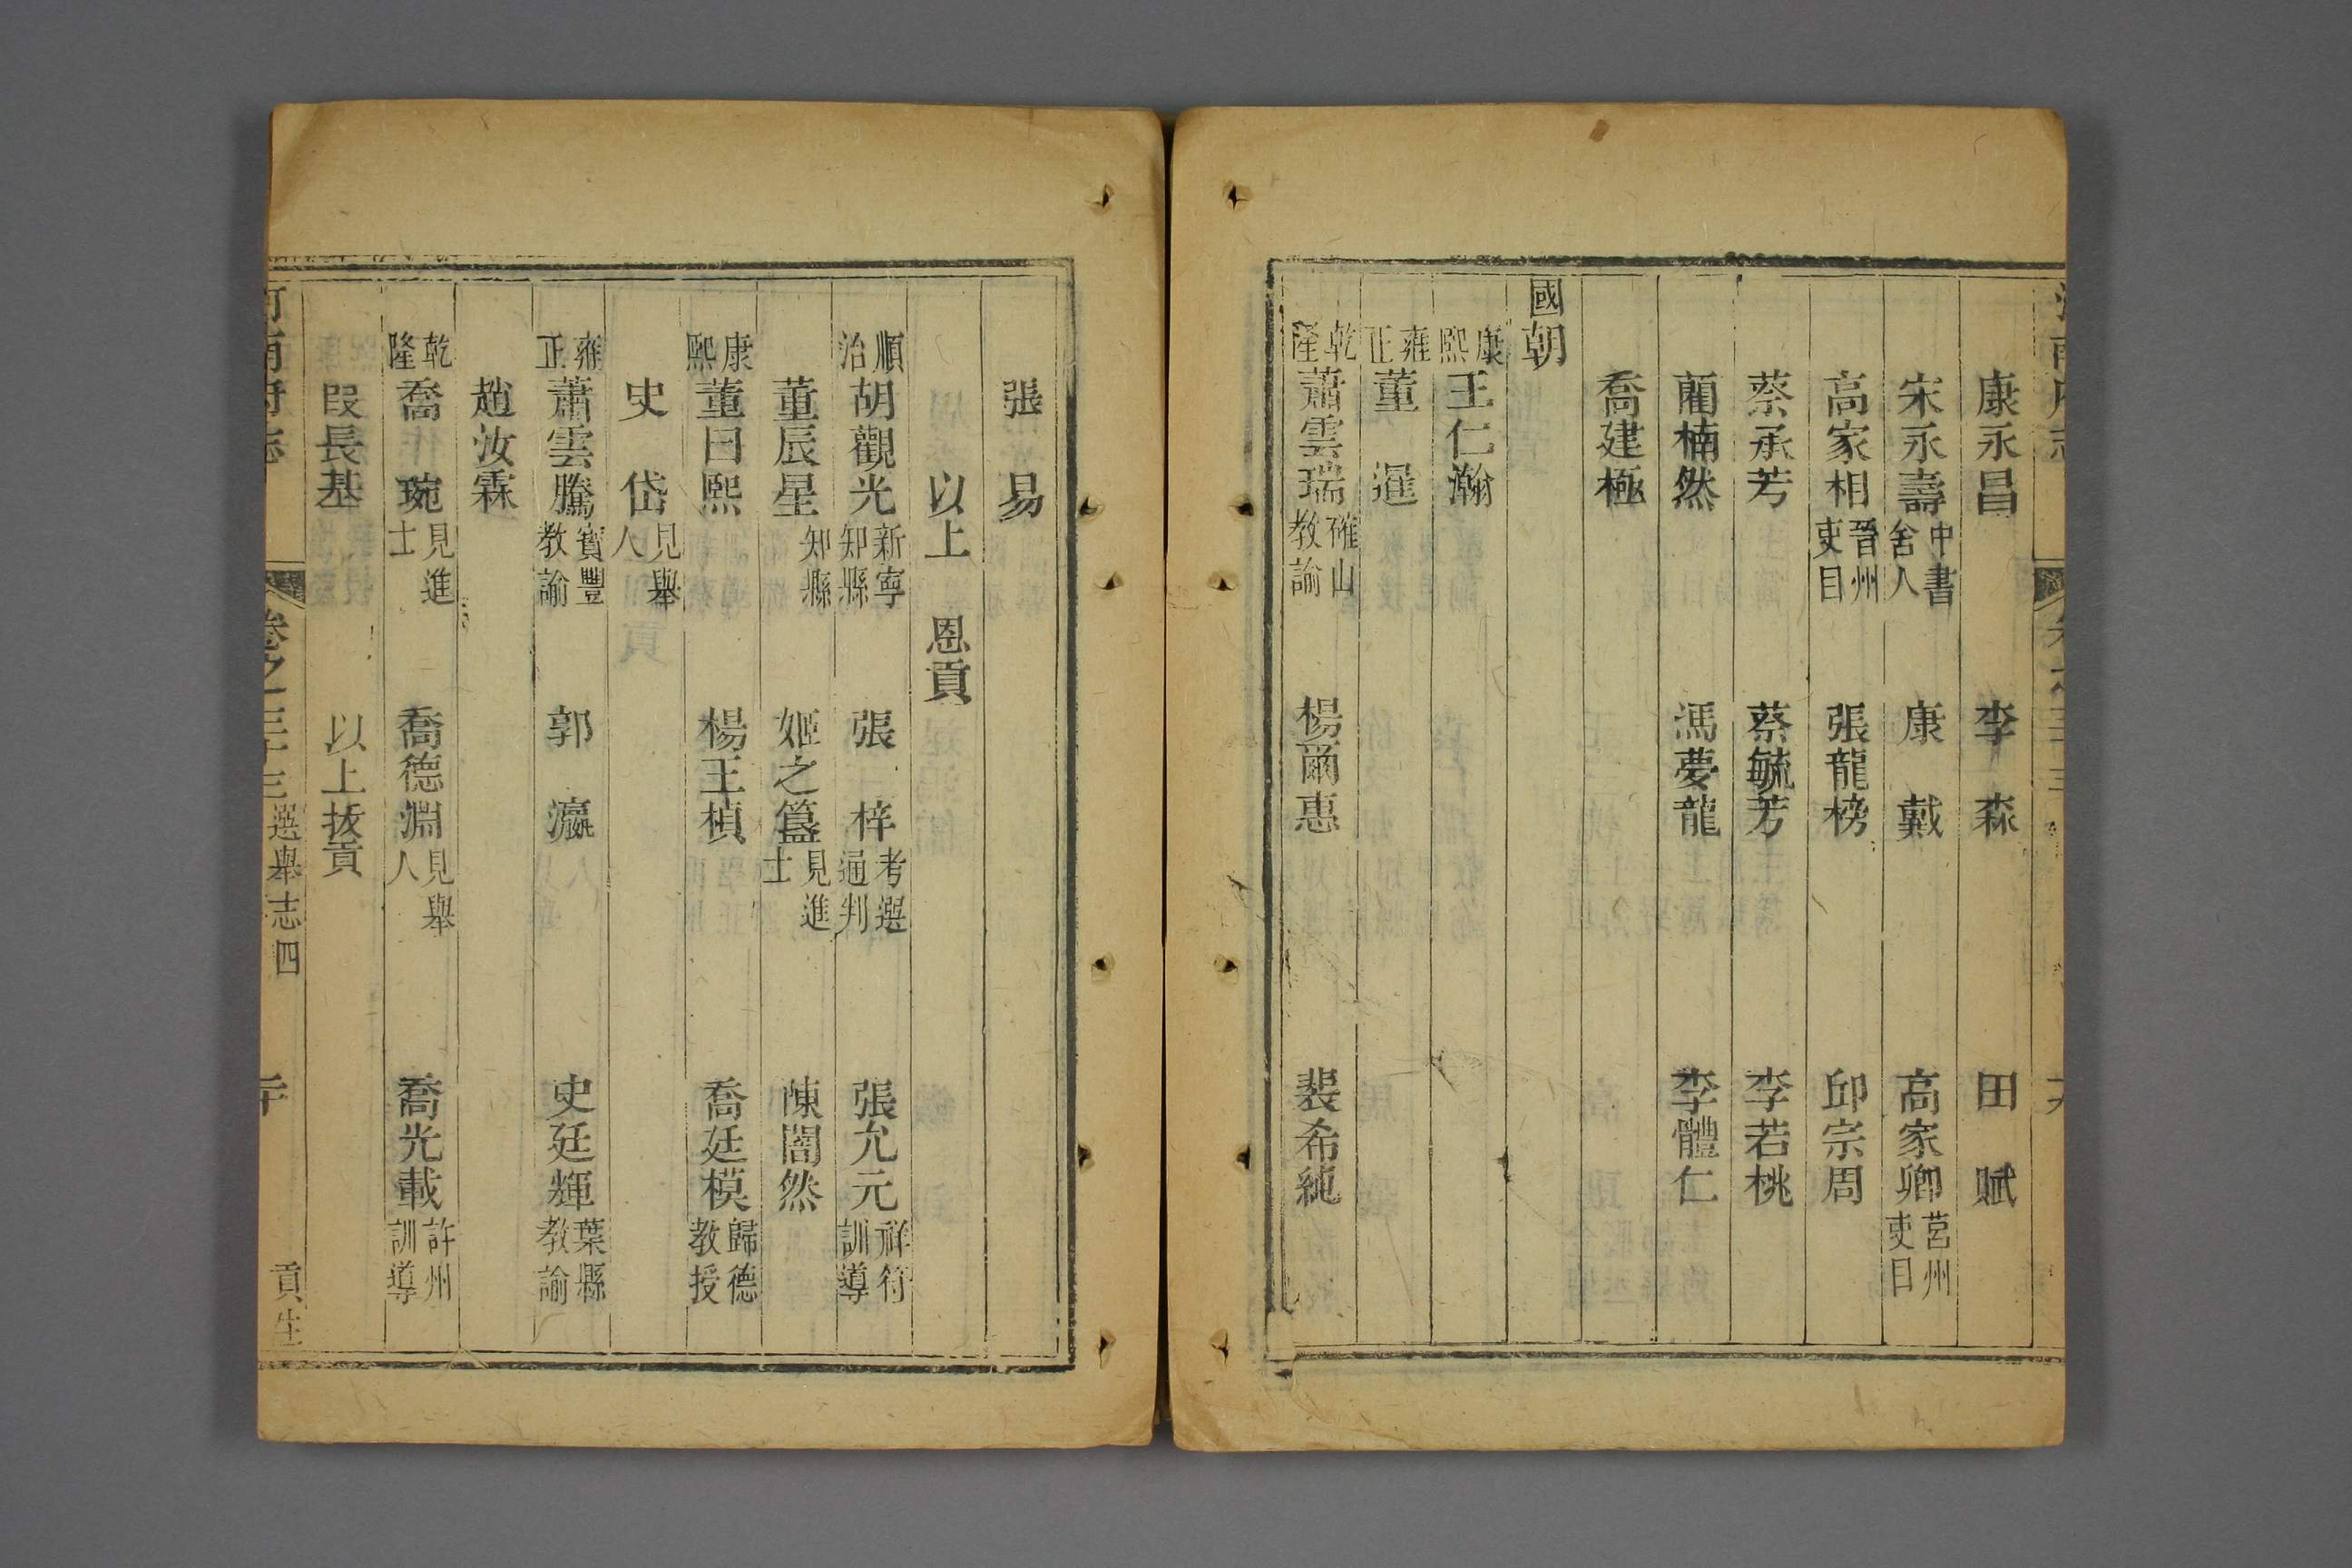 康永昌 李森 田賦
宋永壽 中書舍人 康戴 高家卿 莒州吏目
高家相 晉州吏目 張龍榜 邱宗周
蔡承芳 蔡毓芳 李若桃
藺楠然 馮夢龍 李體仁
喬建極
國朝
康熙 王仁瀚
雍正 董暹
乾隆 蕭雲瑞 確山教諭 楊爾惠 裴希純
張易
以上恩貢
順治 胡觀光 新寧知縣 張梓 考選通判 張允元 祥符訓導
董辰星 知縣 姬之簋 見進士 陳闇然
康熙 董曰熙 楊王楨 喬廷模 歸德教授
史岱 見舉人
雍正 蕭雲騰 寶豐教諭 郭瀛 史廷輝 葉縣教諭
趙汝霖
乾隆 喬琬 見進士 喬德淵 見舉人 喬光載 許州訓導
段長基 以上拔貢
河南府志 卷之三十三 選舉志四 二十 貢生